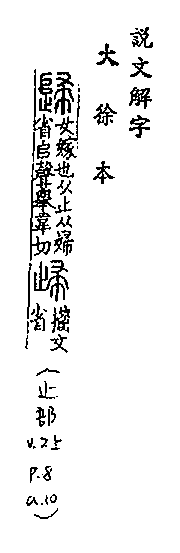 説文解字
大徐本
歸女嫁也从止从婦
省𠂤聲舉韋切㱕籒文
省
(止部
v.25
p.8
a.10)